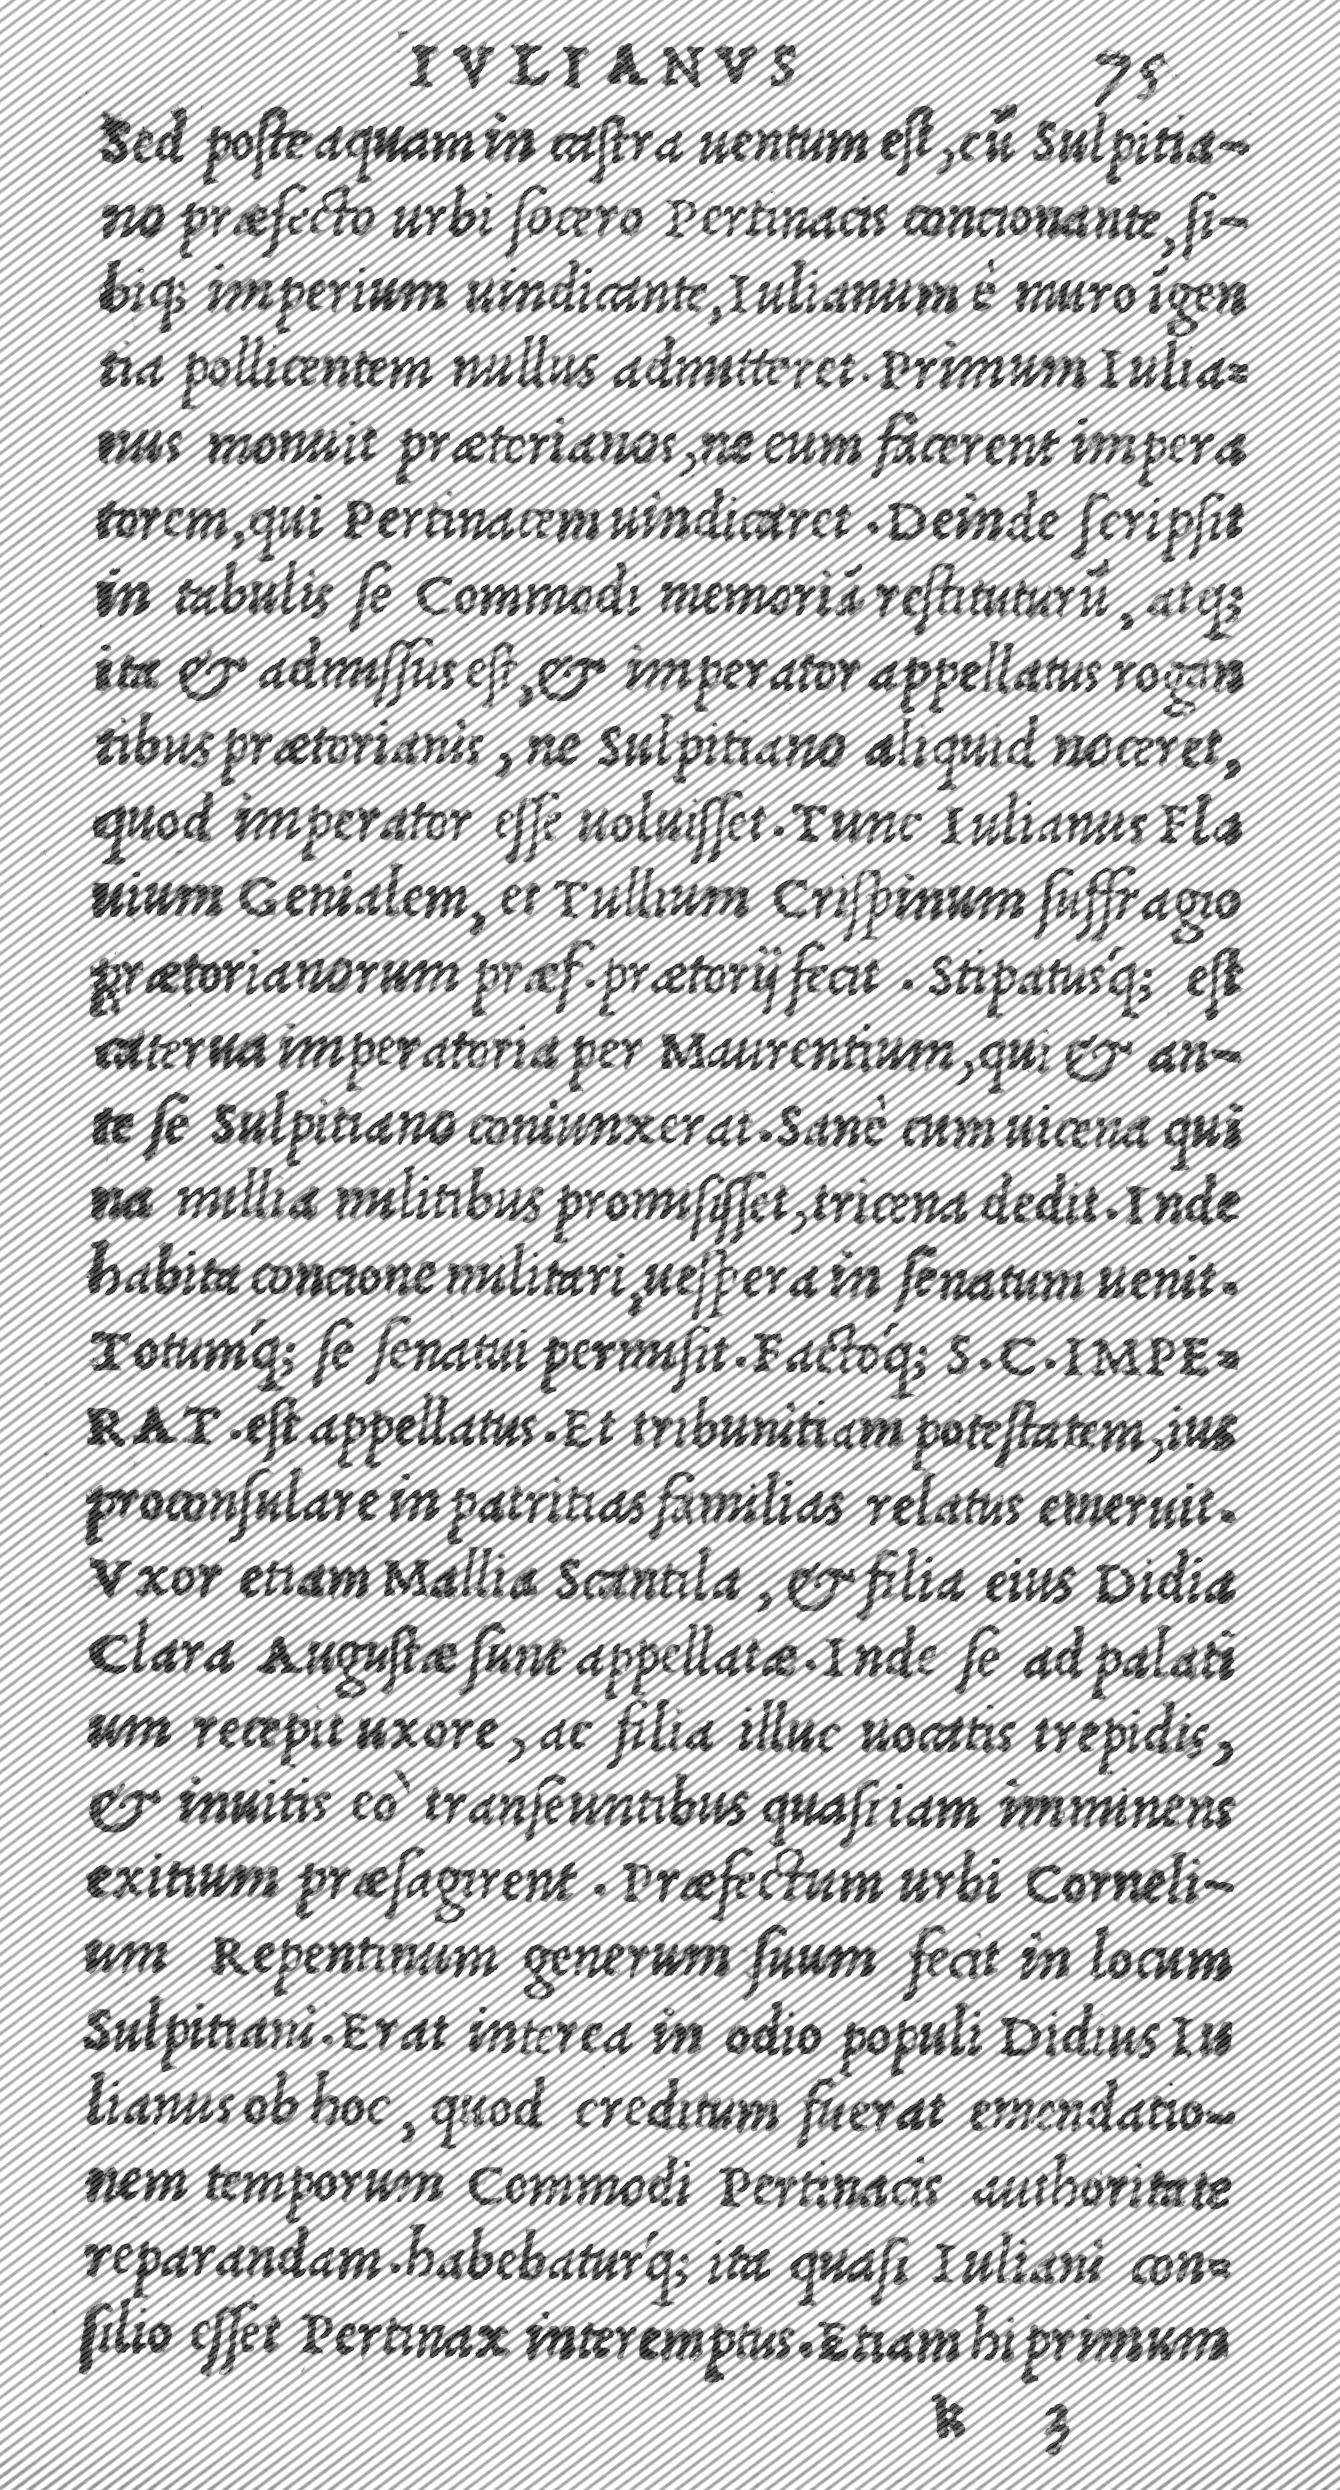 IVLIANVS 75
Sed poſteaquam in caſtra uentum eſt, cū Sulpitia-
no præfecto urbi ſocero Pertinacis concionante, ſi-
biq; imperium uindicante, Iulianum è muro īgen
tia pollicentem nullus admitteret. Primum Iulia-
nus monuit prætorianos, ne eum facerent impera
torem, qui Pertinacem uindicaret. Deinde ſcripſit
in tabulis ſe Commodi memoriā reſtituturū, atq;
ita & admiſſus eſt, & imperator appellatus rogan
tibus prætorianis, ne Sulpitiano aliquid noceret,
quod imperator eſſe uoluiſſet. Tunc Iulianus Fla
uium Genialem, et Tullium Criſpinum ſuffragio
prætorianorum præf. prætorij fecit. Stipatusq́; eſt
caterua imperatoria per Maurentium, qui & an-
te ſe Sulpitiano coniunxerat. Sanè cum uicena qui
na millia militibus promiſiſſet, tricena dedit. Inde
habita concione militari, ueſpera in ſenatum uenit.
Totumq́; ſe ſenatui permiſit. Factoq́; S.C. IMPE-
RAT. eſt appellatus. Et tribunitiam poteſtatem, ius
proconſulare in patritias familias relatus emeruit.
Vxor etiam Mallia Scantila, & filia eius Didia
Clara Auguſtæ ſunt appellatæ. Inde ſe ad palati
um recepit uxore, ac filia illuc uocatis trepidis,
& inuitis eò tranſeuntibus quaſi iam imminens
exitium præſagirent. Præfectum urbi Corneli-
um Repentinum generum ſuum fecit in locum
Sulpitiani. Erat interea in odio populi Didius Iu
lianus ob hoc, quod creditum fuerat emendatio-
nem temporum Commodi Pertinacis authoritate
reparandam. habebaturq́; ita quaſi Iuliani con-
ſilio eſſet Pertinax interemptus. Etiam hi primum
k 3